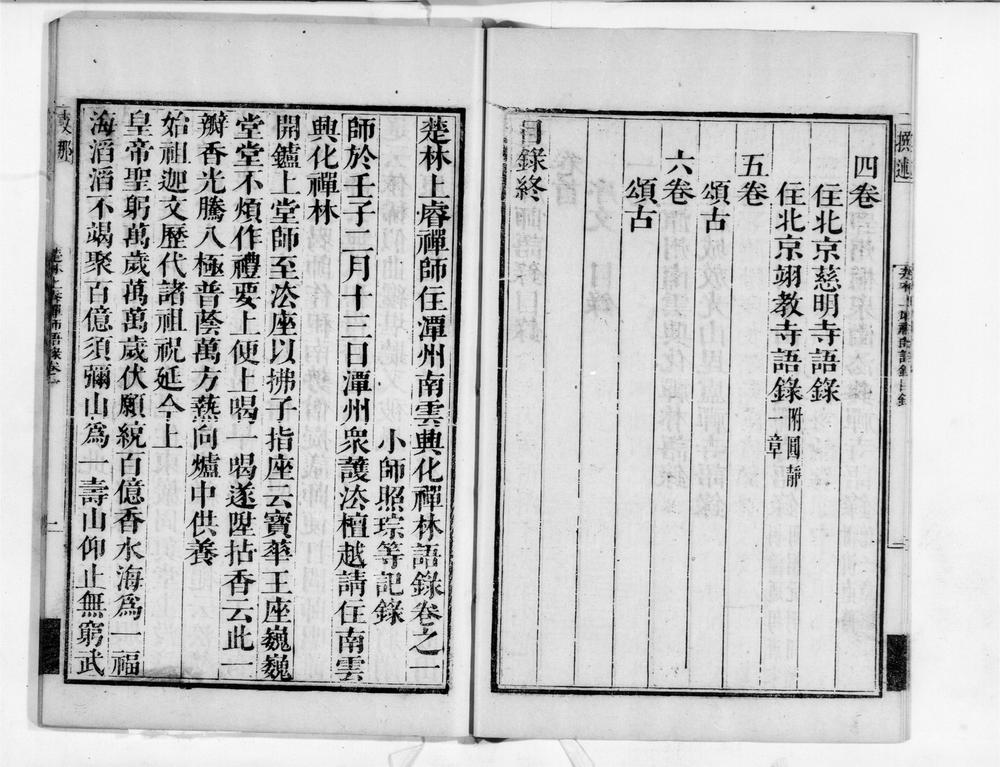 四卷
住北京慈明寺語錄
住北京翊教寺語錄附圓靜一章
五卷
頌古
六卷
頌古
目錄終
楚林上睿禪師住潭州南雲興化禪林語錄卷之一
小師照琮等記錄
師於壬子二月十三日潭州衆護法檀越請住南雲
興化禪林
開鑪上堂師至法座以拂子指座云寶華王座巍巍
堂堂不煩作禮要上便上喝一喝遂陞拈香云此一
瓣香光騰八極普蔭萬方爇向爐中供養
始祖迦文歷代諸祖祝延今上
皇帝聖躬萬歲萬萬歲伏願統百億香水海爲一福
海滔滔不竭聚百億須彌山爲此壽山仰止無窮武